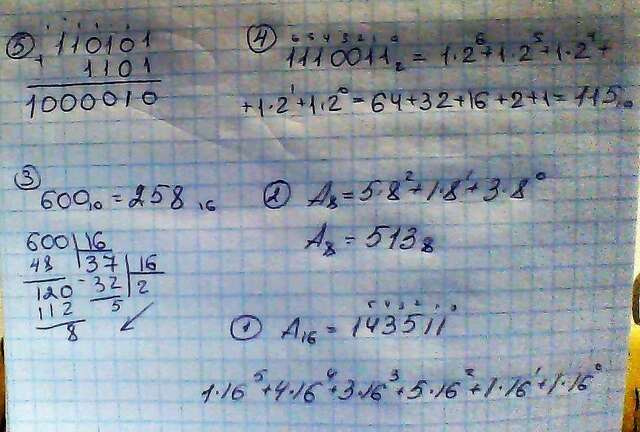 ⑤ 110101
+ 1101
1000010
④ 1110011₂ = 1·2⁶+1·2⁵+1·2⁴+
+1·2¹+1·2⁰=64+32+16+2+1=115₁₀
③
600₁₀=258₁₆
600 16
48 37 16
120 32 2
112 5
8
② A₈=5·8²+1·8¹+3·8⁰
A₈=513₈
① A₁₆=143511
1·16⁵+4·16⁴+3·16³+5·16²+1·16¹+1·16⁰